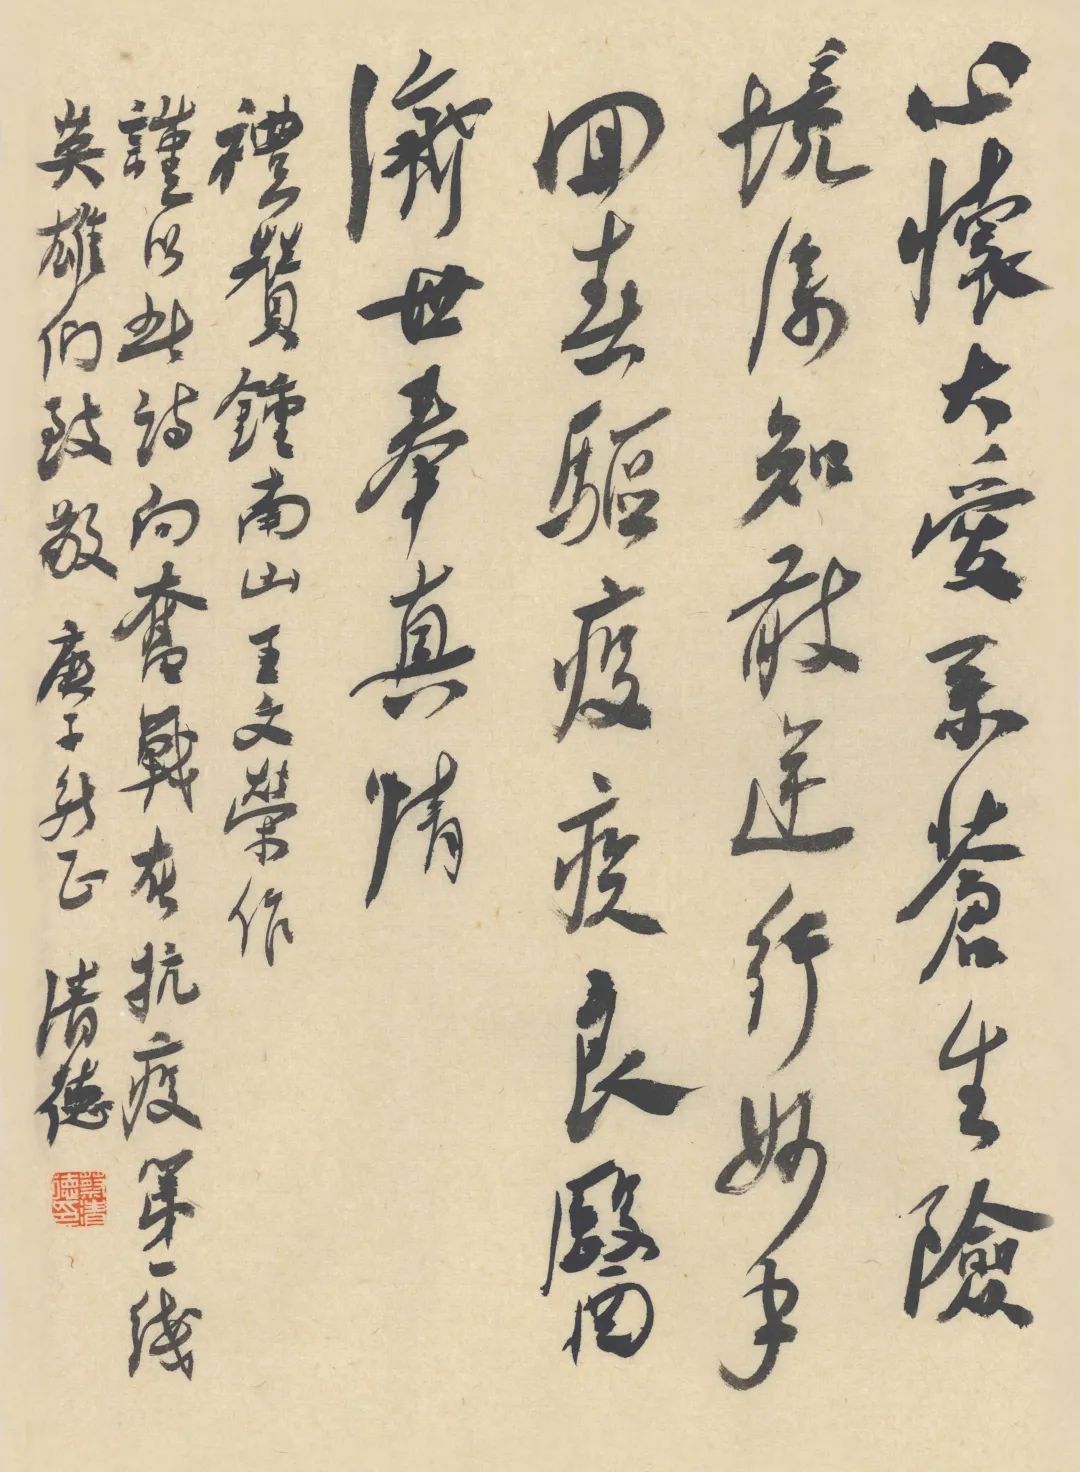 心懷大愛系蒼生險
境深知敢逆行妙手
回春驅疫疾良醫
濟世奉真情
禮贊鍾南山王文榮作
謹以此詩向奮戰在抗疫第一线
英雄们致敬 庚子新正 清德